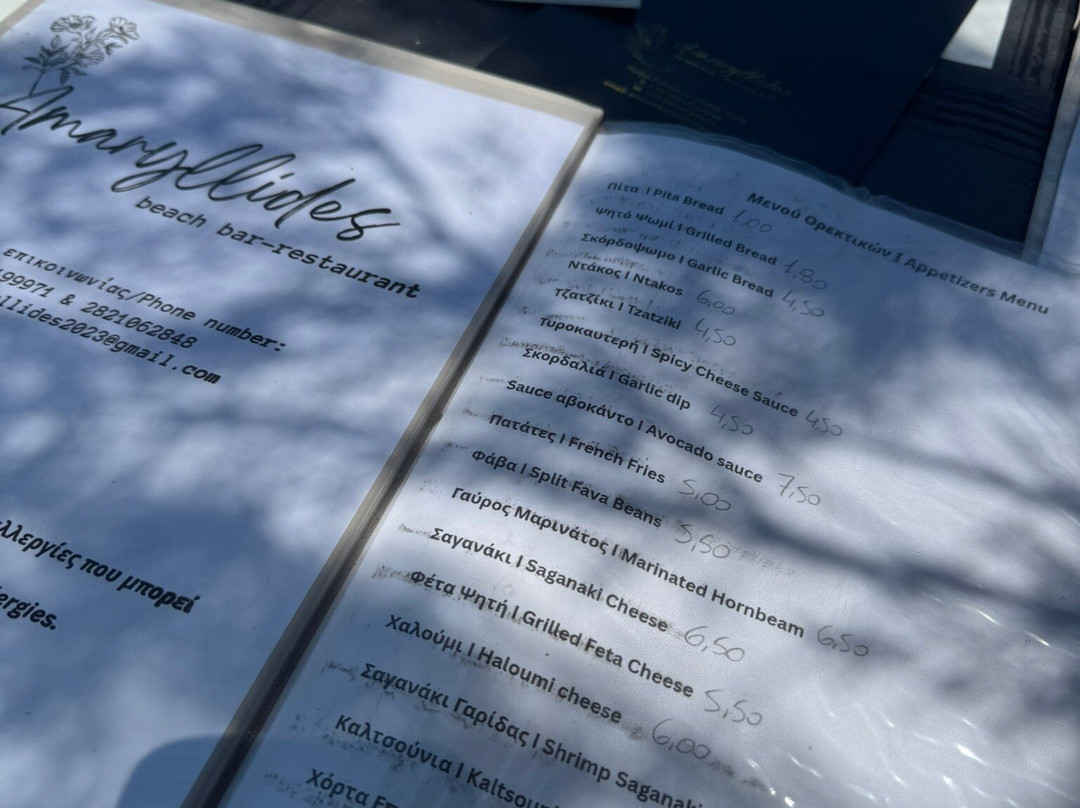 Amaryllides
beach bar-restaurant
επικοινωνίας/Phone number:
99971 & 2821062848
llides2023@gmail.com
λλεργίες που μπορεί
ergies.
Amaryllides
Μενού Ορεκτικών | Appetizers Menu
Πίτα | Pita Bread 1,00
Ψητό Ψωμί | Grilled Bread 1,80
Σκόρδοψωμο | Garlic Bread 4,50
Ντάκος | Ntakos 6,00
Τζατζίκι | Tzatziki 4,50
Τυροκαυτερή | Spicy Cheese Sauce 4,50
Σκορδαλιά | Garlic dip 4,50
Sauce αβοκάντο | Avocado sauce 7,50
Πατάτες | French Fries 5,00
Φάβα | Split Fava Beans 5,50
Γαύρος Μαρινάτος | Marinated Hornbeam 6,50
Σαγανάκι | Saganaki Cheese 6,50
Φέτα Ψητή | Grilled Feta Cheese 5,50
Χαλούμι | Haloumi cheese 6,00
Σαγανάκι Γαρίδας | Shrimp Saganaki
Καλτσούνια | Kaltsouni
Χόρτα